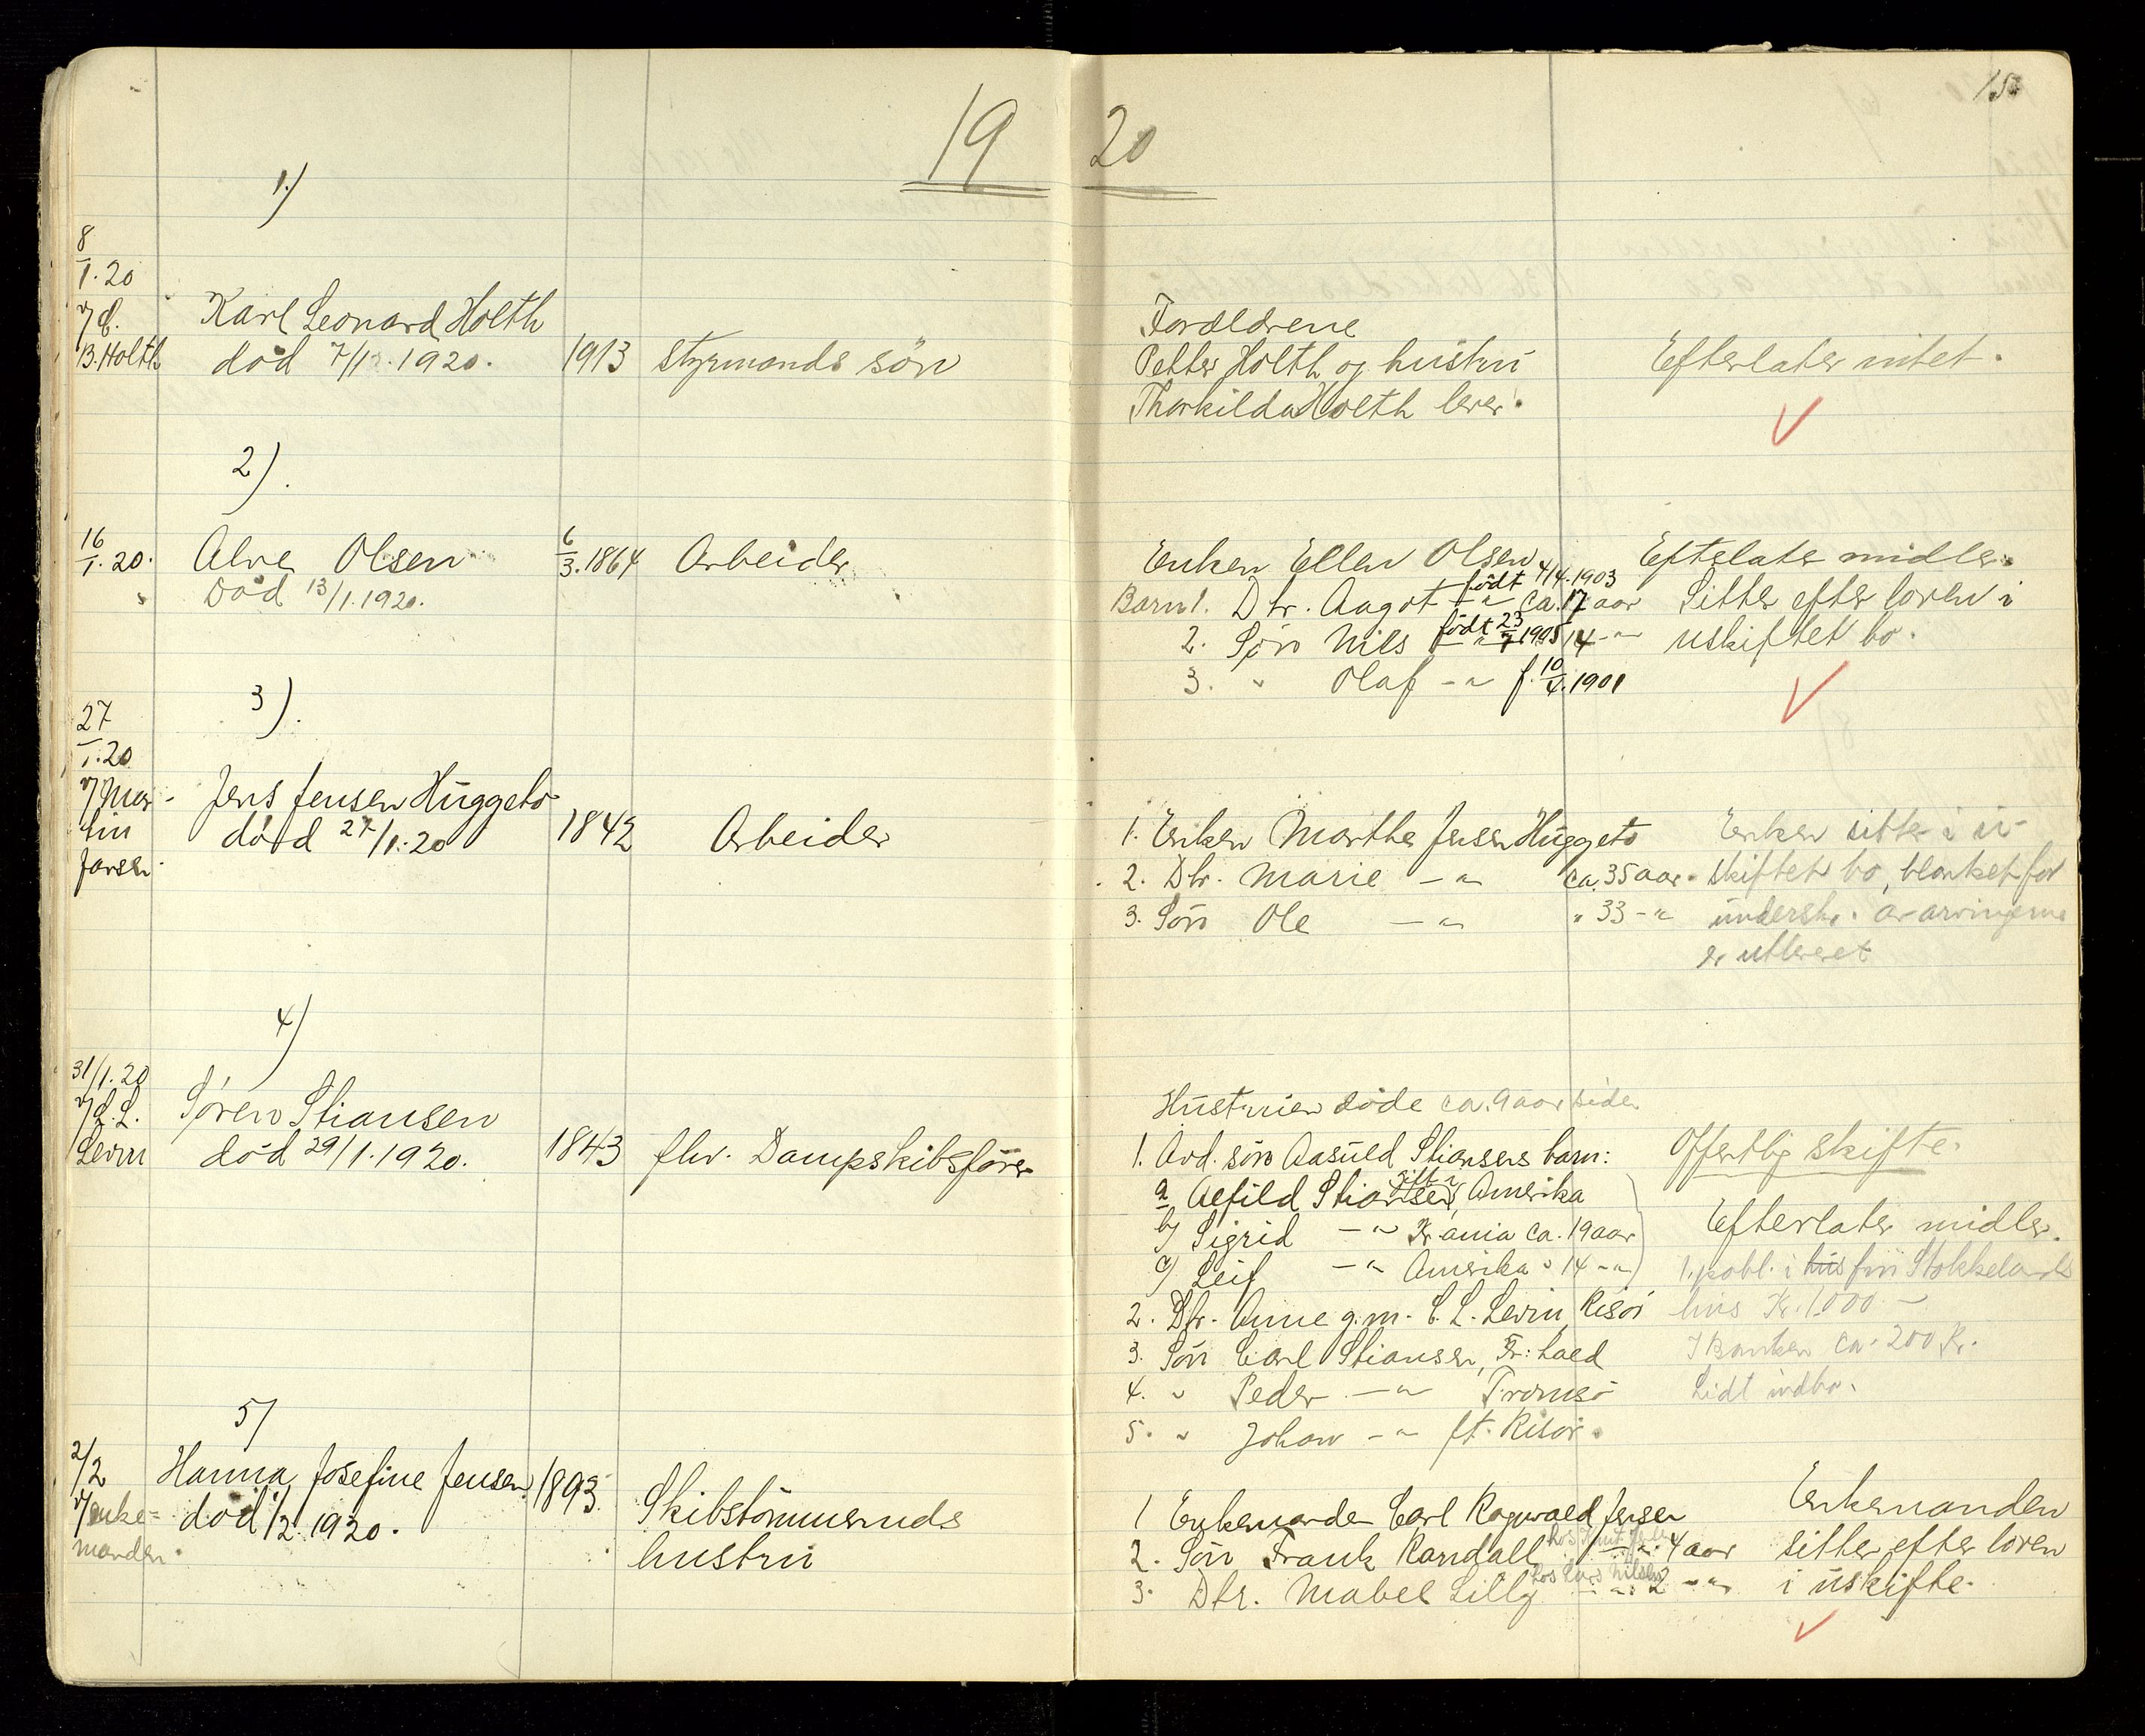 19 20
15
1.)
8/1.20
v/ C. B. Holth
Karl Leonard Holth
død 7/1. 1920.
1913 Styrmands søn
Forældrene
Petter Holth og hustru
Thorkilda Holth lever.
Efterlater intet.
2).
16/1.20. Alve Olsen
Død 13/1.1920.
6/3.1864 Arbeider
Enken Ellen Olsen
Barn 1. Dtr. Aagot -"- født 4/4.1903 ca. 17 aar
2. Søn Nils -"- født 23/7 1905 14 -"-
3. " Olaf -"- f. 10/4.1901
Eftelater midler.
Sitter efter loven i
uskiftet bo.
3).
27/1.20
v/ Martin Jensen
Jens Jensen Huggeto
død 27/1.20
1842 Arbeider
1. Enken Marthe Jensen Huggeto
2. Dtr. Marie -"- ca. 35 aar
3. Søn Ole -"- " 33 -"-
Enken sitter i u-
skiftet bo, blanket for
underskr. av arvingerne
er utleveret
4)
31/1.20
v/ C. L. Levin
Søren Stiansen
død 29/1.1920.
1843 fhv. Dampskibsfører
Hustruen døde ca. 9 aar siden
1. Avd. søn Aasuld Stiansens barn:
a Alfild Stiansen, gift i Amerika
b) Sigrid -"- Kr.ania ca. 19 aar
c) Leif -"- Amerika " 14 -"-
2. Dtr. Anne g.m. C. L. Levin, Risør
3. Søn Carl Stiansen, Fr:hald
4. " Peder -"- Tromsø
5. " Johan -"- ft. Risør.
Offentlig skifte.
Efterlater midler.
1. pobl. i hus fru Stokkelands
hus Kr. 1000 -
I Banken ca. 200 Kr.
Lidt indbo.
5/
2/2
v/ enke-
manden
Hanna Josefine Jensen
død 1/2. 1920.
1893. Skibstømmermds
hustru
1 Enkemanden Carl Ragnvald Jensen
2. Søn Frank Randall -"- 4 aar
3. Dtr. Mabel Lilly -"- 2 -"-
Enkemanden
sitter efter loven
i uskifte.